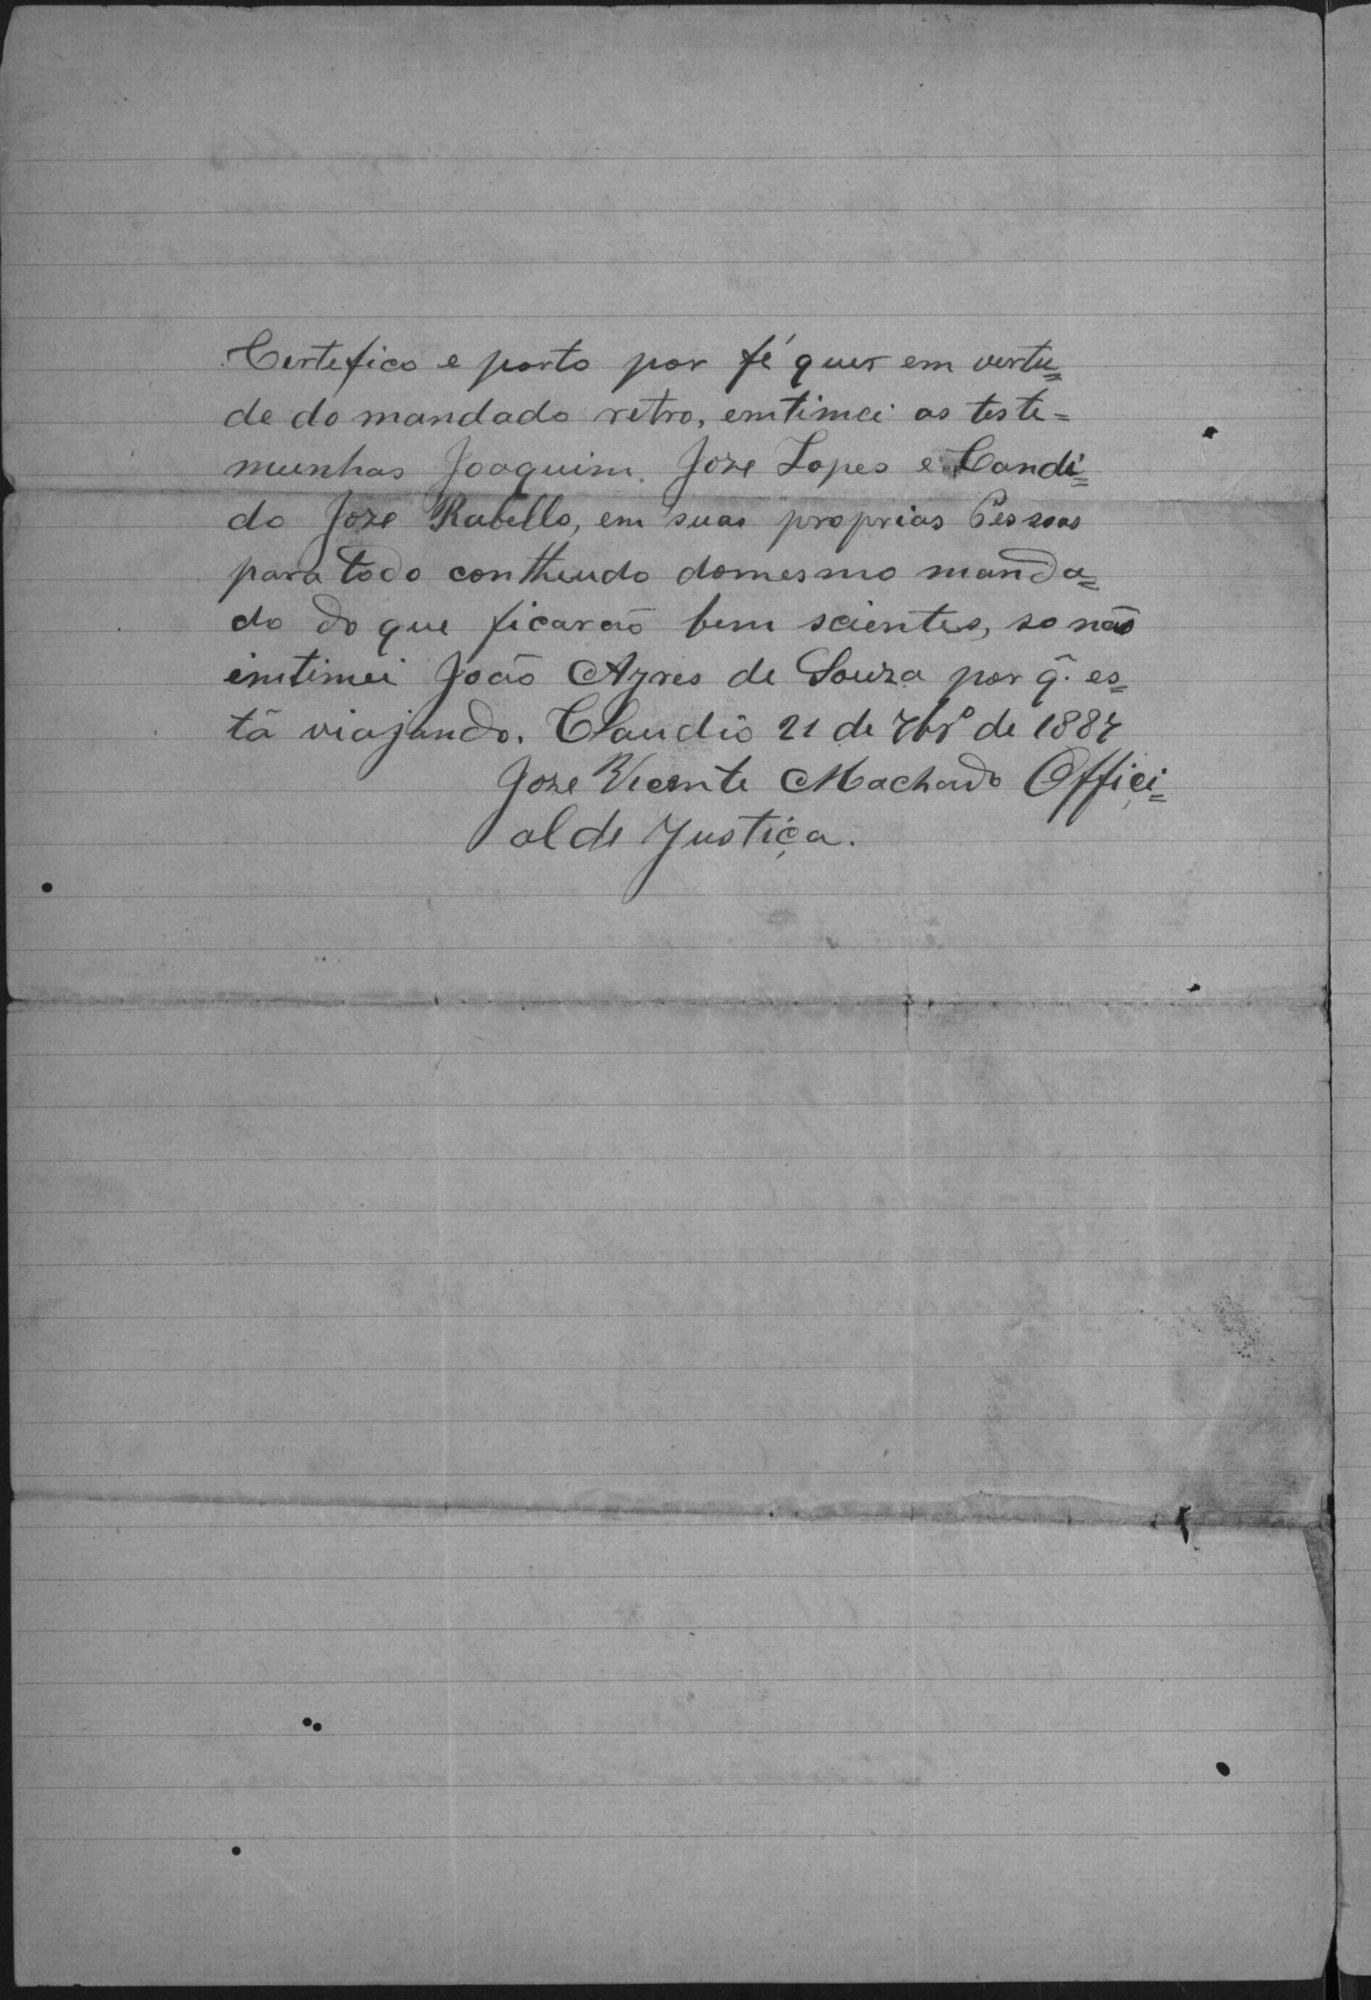 Certefico e porto por fé quer em vertu=
de do mandado retro, emtimei as teste=
munhas Joaquim Joze Lopes e Candi=
do Joze Rabello, em suas proprias Pessoas
para todo contheudo domesmo manda=
do do que ficarão bem scientes, so não
imtimei João Ayres de Souza por q̃. es=
tã viajando. Claudio 21 de 7brº de 1887
Joze Vicente Machado Offici=
al de Justiça.